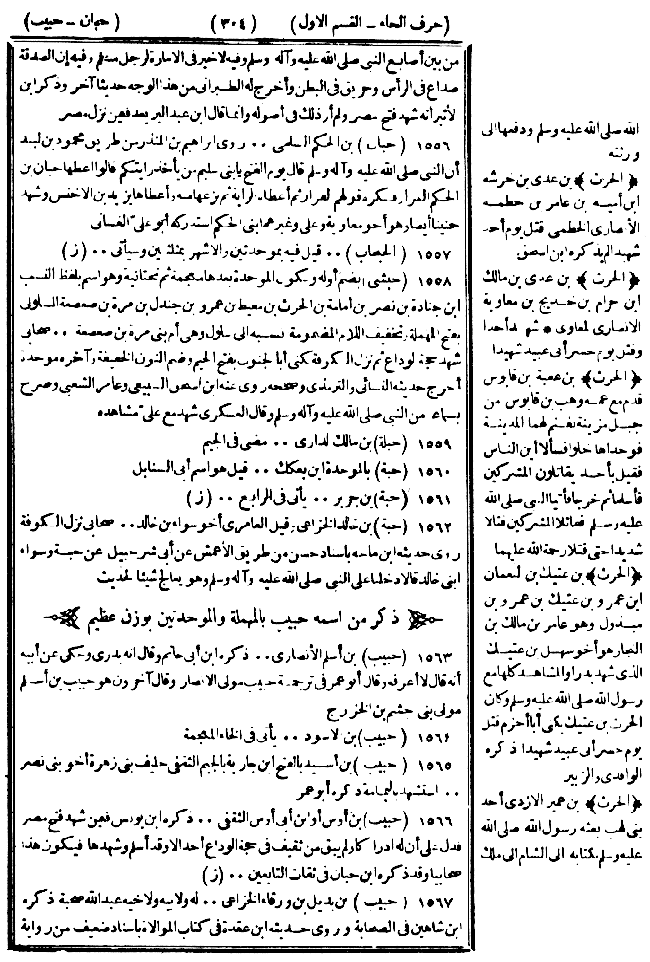 (حرف الحاء – القسم الاول) (٣٠٤) (حبان – حبيب)
من بين أصابع النبي صلى الله عليه وآله وسلم وفيه لاخير فى الامارة لرجل مسلم وفيه إن الصدقة
صداع فى الرأس وحريق فى البطن وأخرج له الطبرانى من هذا الوجه حديثا آخر وذكر ابن
لأثير انه شهد فتح مصر ولم أر ذلك فى أصوله وانما قال ابن عبد البر يعد فيمن نزل مصر
١٥٥٦ (حباب) بن الحكم السلمى ٠٠ روى ابراهيم بن المنذر من طريق محمود بن لبيد
أن النبي صلى الله عليه وآله وسلم قال يوم الفتح يابنى سليم من يأخذ رايتكم قالوا اعطها حبان بن
الحكم الفرار فكره قولهم الفرار ثم أعطاه الراية ثم نزعها منه وأعطاها يزيد بن الاخنس وشهد
حنينا أيضا وهو أخو معاوية وعلى وغيرهما بنى الحكم استدركه أبو على الغسانى
١٥٥٧ (الحباب) ٠٠ قيل فيه بموحدتين والاشهر بمثلثتين وسيأتى ٠٠ (ز)
١٥٥٨ (حبشى) بضم أوله وسكون الموحدة بعدها معجمة ثم تحتانية وهو اسم بلفظ النسب
ابن جنادة بن نصر بن أمامة بن الحرث بن معيط بن عمرو بن جندل بن مرة بن صعصعة السلولى
بفتح المهملة وتخفيف اللام المضمومة نسبه الى سلول وهى أم بنى مرة بن صعصعة ٠٠ صحابى
شهد حجة الوداع ثم نزل الكوفة كنى أبا لجنوب بفتح الجيم وضم النون الخفيفة وآخره موحدة
أخرج حديثه النسائى والترمذى وصححه روى عنه ابن اسحق السبيعى وعامر الشعبى وصرح
بسماعه من النبي صلى الله عليه وآله وسلم وقال العسكرى شهد مع على مشاهده
١٥٥٩ (حبلة) بن مالك لدارى ٠٠ مضى فى الجيم
١٥٦٠ (حبة) بالموحدة ابن بعكك ٠٠ قيل هو اسم أبى السنابل
١٥٦١ (حبة) بن جرير ٠٠ يأتى فى الرابع ٠٠ (ز)
١٥٦٢ (حبة) بن خالد الخزاعى وقيل العامرى أخو سواء بن خالد ٠٠ صحابى نزل الكوفة
روى حديثه ابن ماجه باسناد حسن من طريق الأعمش عن أبى شرحبيل عن حبة وسواء
ابنى خالد قالا دخلنا على النبي صلى الله عليه وآله وسلم وهو يعالج شيئا الحديث
ذكر من اسمه حبيب بالمهملة والموحدتين بوزن عظيم
١٥٦٣ (حبيب) بن أسلم الأنصارى ٠٠ ذكره ابن أبى حاتم وقال انه بدرى وحكى عن أبيه
أنه قال لا أعرفه وقال أبو عمر فى ترجمة حبيب مولى الانصار وقال آخرون هو حبيب بن أسلم
مولى بنى جشم بن الخزرج
١٥٦٤ (حبيب) بن لاسود ٠٠ يأتى فى الخاء المعجمة
١٥٦٥ (حبيب) بن أسيد بالفتح ابن جارية بالجيم الثقفى حليف بنى زهرة أخو بنى نصر
٠٠ استشهد باليمامة ذكره أبو عمر
١٥٦٦ (حبيب) بن أوس أو ابن أبى أوس الثقفى ٠٠ ذكره ابن يونس فيمن شهد فتح مصر
فدل على أن له ادراكا ولم يبق من ثقيف فى حجة الوداع أحد الا وقد أسلم وشهدها فيكون هذا
صحابيا وقد ذكره ابن حبان فى ثقات التابعين ٠٠ (ز)
١٥٦٧ (حبيب) بن بديل بن ورقاء الخزاعى ٠٠ له ولابيه ولاخيه عبد الله صحبة ذكره
ابن شاهين فى الصحابة وروى حديثه ابن عقدة فى كتاب الموالاة باسناد ضعيف من رواية
الله صلى الله عليه وسلم ودفعها الى
ورثته
﴿الحرث﴾ بن عدى بن خرشه
ابن أمية بن عامر بن خطمه
الأنصارى الخطمى قتل يوم أحد
شهيدا لم يذكره ابن اسحق
﴿الحرث﴾ بن عدى بن مالك
ابن حرام بن خديج بن معاوية
الانصارى لمعاوى * شهد أحدا
وقتل يوم جسر أبى عبيد شهيدا
﴿الحرث﴾ بن عقبة بن قابوس
قدم مع عمه وهب بن قابوس من
جبل مزينة بغنم لهما المدينة
فوجداها خلوا فسألا أين الناس
فقيل بأحد يقاتلون المشركين
فأسلما ثم خرجا فأتيا النبي صلى الله
عليه وسلم فقاتلا المشركين قتالا
شديدا حتى قتلا رحمة الله عليهما
﴿الحرث﴾ بن عتيك بن النعمان
ابن عمرو بن عتيك بن عمرو بن
مبدول وهو عامر بن مالك بن
النجار هو أخو سهل بن عتيك
الذى شهد بدرا والمشاهد كلها مع
رسول الله صلى الله عليه وسلم وكان
الحرث بن عتيك يكنى أبا أخزم قتل
يوم جسر أبى عبيد شهيدا ذكره
الواقدى والزبير
﴿الحرث﴾ بن عمير الازدى أحد
بنى لهب بعثه رسول الله صلى الله
عليه وسلم بكتابه الى الشام الى ملك